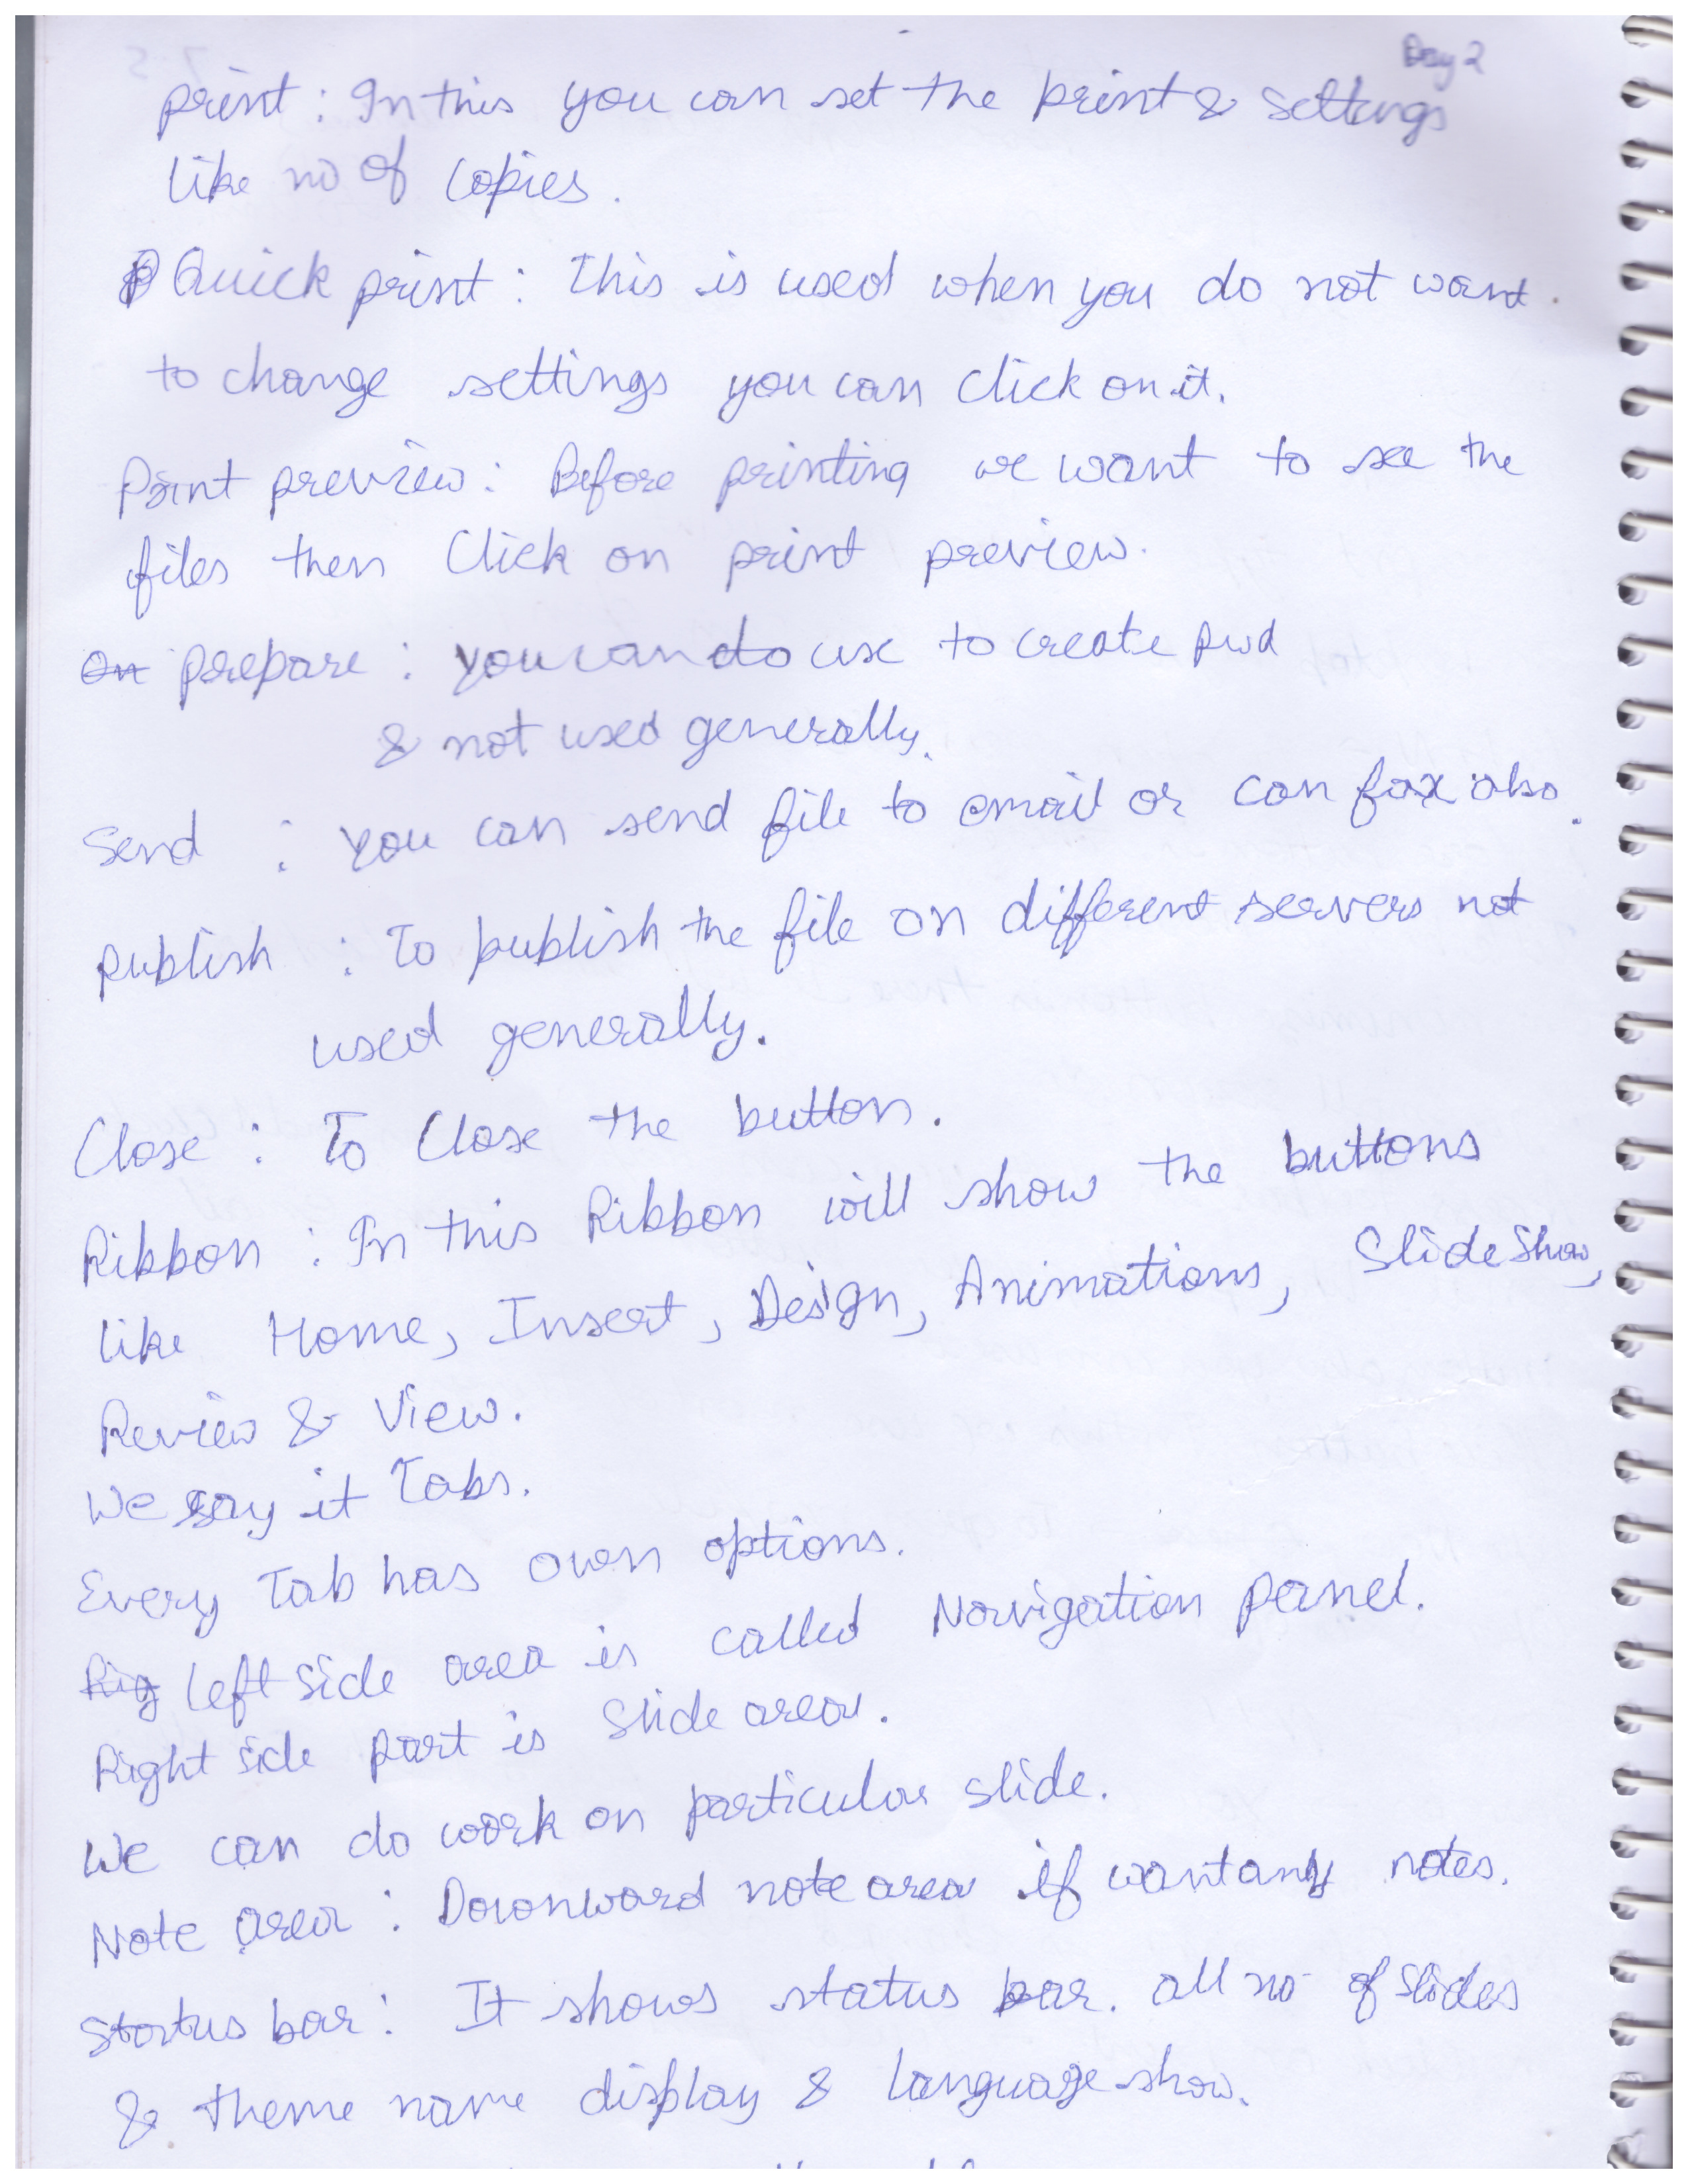 Day 2
print : In this you can set the print & settings
like no of copies.
Quick print : This is used when you do not want
to change settings you can click on it.
Print preview : Before printing we want to see the
files then Click on print preview.
prepare : you can do use to create pwd
& not used generally.
Send : you can send file to email or can fax also.
publish : To publish the file on different servers not
used generally.
Close : To Close the button.
Ribbon : In this Ribbon will show the buttons
like Home, Insert, Design, Animations, Slide Show,
Review & View.
We say it Tabs.
Every Tab has own options.
Left side area is called Navigation panel.
Right side part is Slide area.
We can do work on particular slide.
Note area : Downward note area if want any notes.
Status bar : It shows status bar. all no of slides
& theme name display & language show.